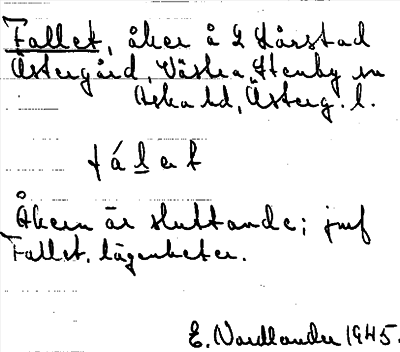 Fallet, åker å 2 Hårstad
Östergård, Västra Stenby sn
Aska hd, Österg. l.
fálet
Åkern är sluttande; jmf
Fallet, lägenheter.
E. Nordlander 1945.